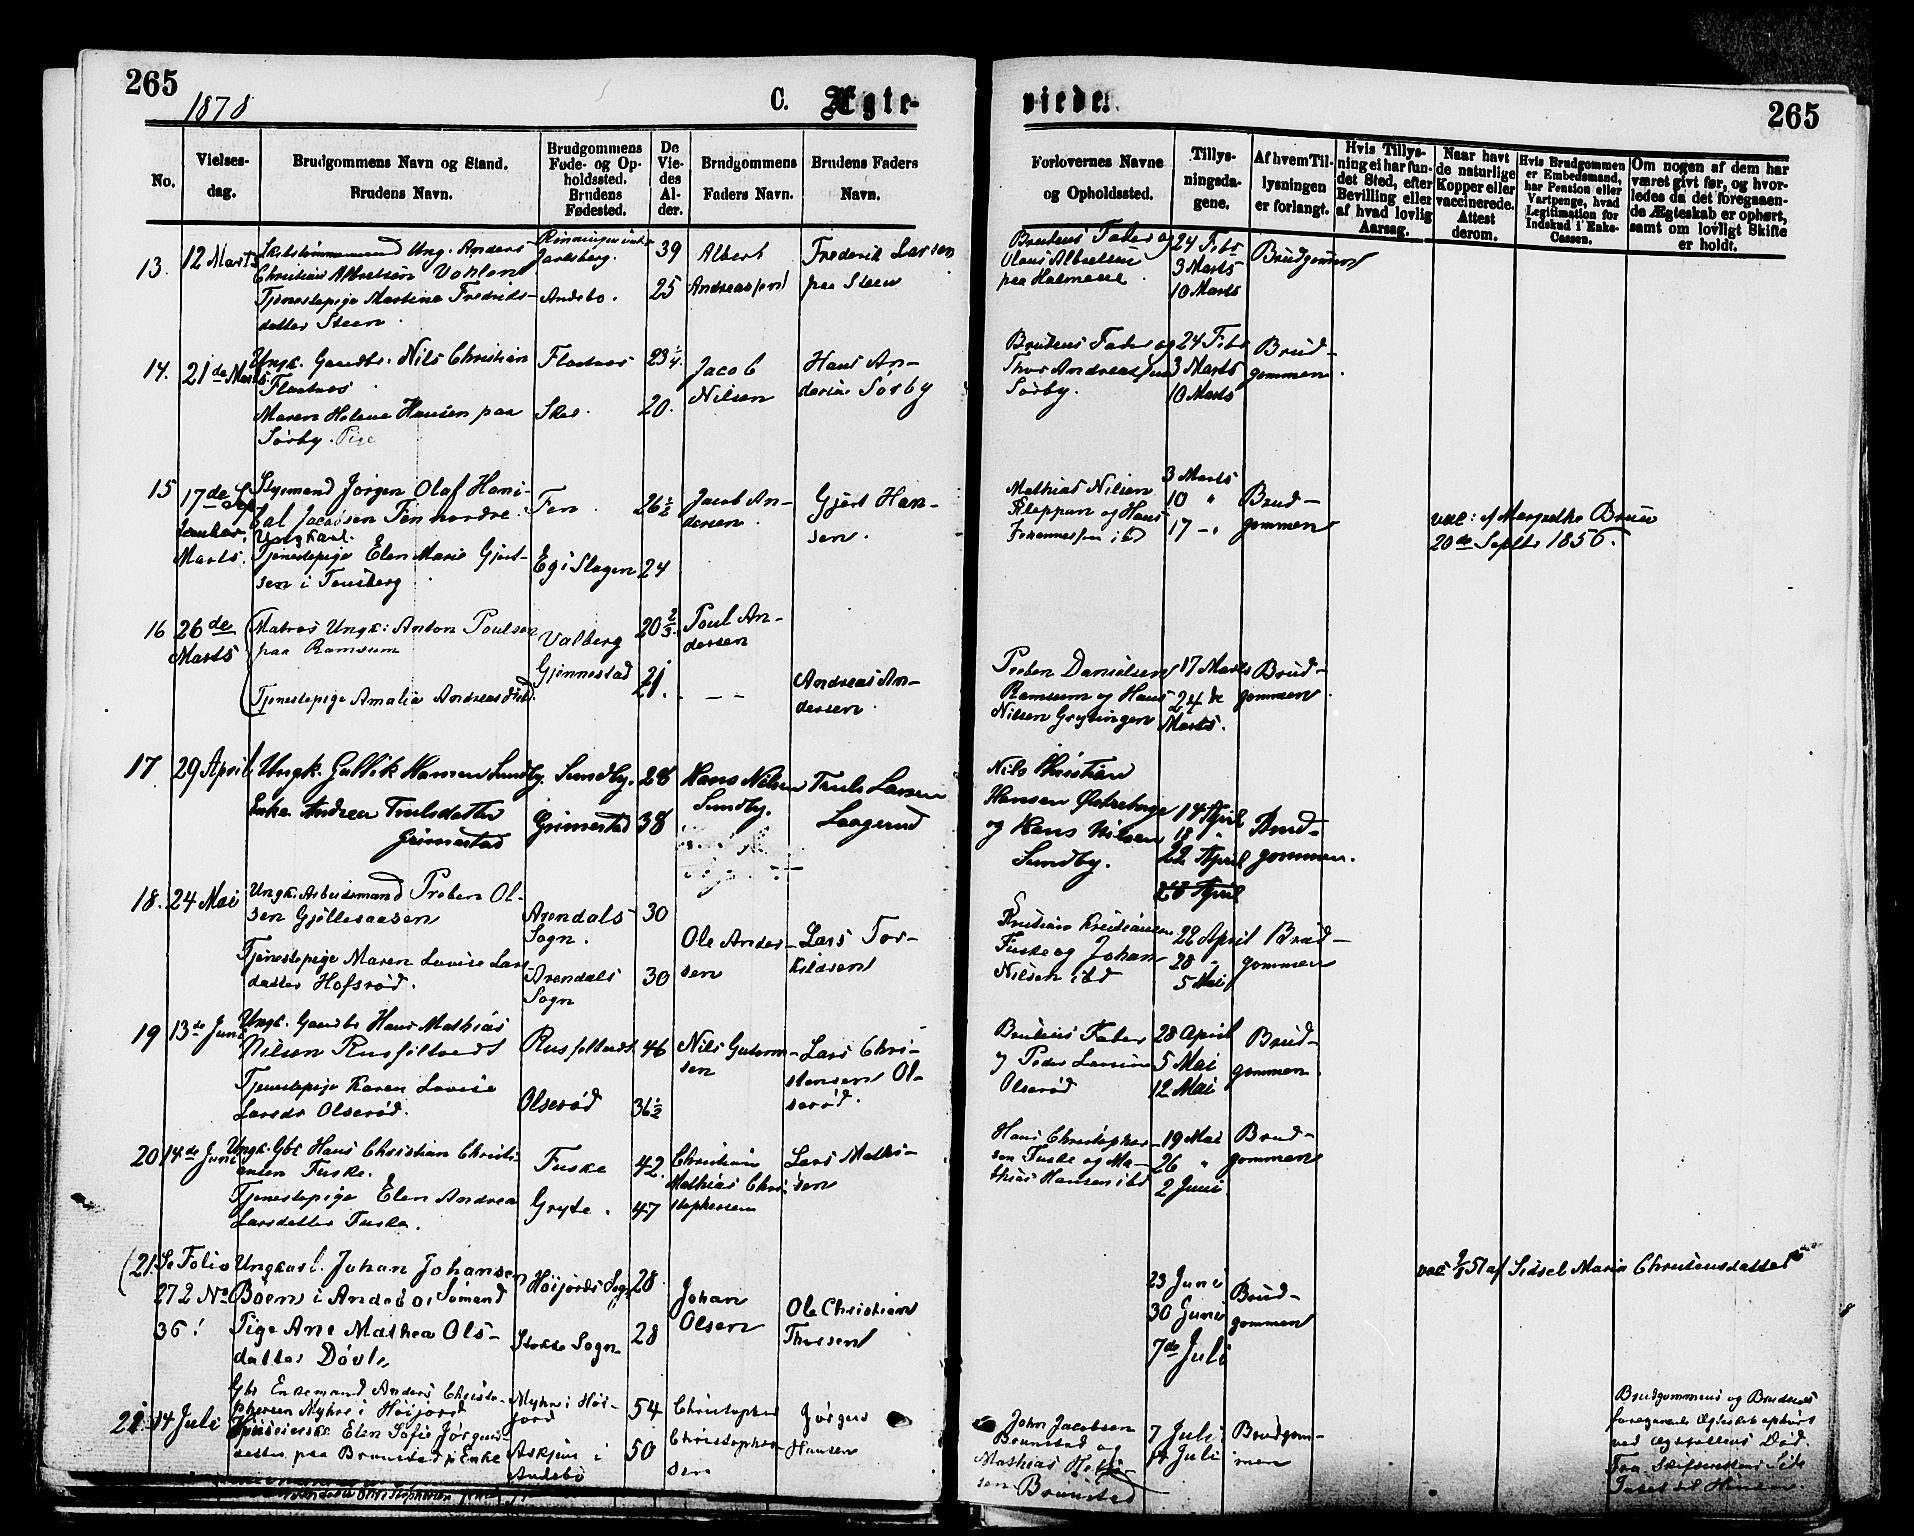 265
1878
C. Ægte-
viede.
265
No.
Vielses-
dag.
Brudgommens Navn og Stand.
Brudens Navn.
Brudgommens
Føde- og Op-
holdssted.
Brudens
Fødested.
De
Vie-
des
Al-
der.
Brudgommens
Faders Navn.
Brudens Faders
Navn.
Forlovernes Navne
og Opholdssted.
Tillys-
ningsda-
gene.
Af hvem Til-
lysningen
er forlangt.
Hvis Tillys-
ning ei har fun-
det Sted, efter
Bevilling eller
af hvad lovlig
Aarsag.
Naar havt
de naturlige
Kopper eller
vaccinerede.
Attest
derom.
Hvis Brudgommen
er Embedsmand,
har Pension eller
Vartpenge, hvad
Legitimation for
Indskud i Enke-
Cassen.
Om nogen af dem har
været givt før, og hvor-
ledes da det foregaaen-
de Ægteskab er ophørt,
samt om lovligt Skifte
er holdt.
13. 12 Marts
Ung. Anders
Christian Albretsen
Tjenestepige Martine Fredriks-
datter Steen.
Jarlsberg.
Andebo.
39
25
Albert
Andreassen
Frederik Larsen
paa Steen
Brudens Fader og
Olaus Albretsen
paa
24 Febr
3 Marts
10 Marts
Brudgommen
14. 21de Marts
Ungk. Gaardbr. Nils Christian
Flaatnes
Maren Helene Hansen paa
Sørby. Pige
Flaatnes
Skee.
23 1/4
20.
Jacob
Nilsen
Hans An-
dersen Sørby
Brudens Fader og
Thor Andreassen
Sørby.
24 Febr
3 Marts
10 Marts
Brud-
gommen
15 17de
Marts.
Styrmand Jørgen Olaf Hani-
bal Jacobsen Fen nordre.
Ungkarl.
Tjenestepige Elen Marie Gjert-
sen i Tønsberg
Fen.
Eg i Slagen
26 1/2
24
Jacob An-
dersen.
Gjert Han-
sen.
Mathias Nilsen
Kleppan og Hans
Johannessen ibd
3 Marts
10 "
17 - "
Brud-
gommen
vac: af Margrethe Bruu
20de Septbr 1856.
16 26de
Marts
Matros Ungk: Anton Poulsen
paa Ramsum
Tjenestepige Amalia Andreasdatt.
Valberg
Gjennestad
20 2/3
21.
Poul An-
dersen
- - -
Andreas An-
dersen.
Preben Danielsen
Ramsum og Hans
Nilsen Grytingen
17 Marts
24 de
Marts.
Brud-
gommen
17 29 April
Ungk. Gullik Hansen Sundby.
Enke Andrea Trulsdatter
Grimestad
Sundby.
Grimestad
28
38
Hans Nilsen
Sundby.
Truls Larsen
Laagerud
Nils Christian
Hansen Østreborge
og Hans Nilsen
Sundby.
14 April
18 "
22 April
28 April
Brud-
gommen.
18. 24 Mai
Ungk. Arbeidsmand Preben Ol-
sen Gjøllesaasen
Tjenestepige Maren Lovise Lars
datter Hofsrød.
Arendals
Sogn.
Arendals
Sogn
30
30
Ole Ander-
sen
Lars Tor-
kildsen
Kristian Kristiansen
Fuske og Johan
Nilsen ibd
22 April
28 "
5 Mai
Brud-
gommen
19 13de Juni
Ungk. Gaardbr Hans Mathias
Nilsen Rusfeltvedt
Tjenestepige Karen Lovise
Larsdr Olserød.
Rusfeltvedt
Olserød
46
36 1/2
Nils Guttorm-
sen
Lars Chri-
stensen Ol-
serød.
Brudens Fader
og Peder Larsen
Olserød
28 April
5 Mai
12 Mai
Brud-
gommen
20 14de Juni
Ungk. Gbr Hans Christian Christi-
ansen Fuske.
Tjenestepige Elen Andrea
Larsdatter Fuske.
Fuske
Gryte.
42.
47
Christian
Mathias Chri-
stophersen
Lars Mathi-
sen
Hans Christopher-
sen Fuske og Ma-
thias Hansen ibd
19 Mai
26 "
2 Juni
Brud-
gommen
(21. Se Folio
272 No
36!
Ungkarl. Johan Johansen
Bøen i Andebo, Sømand
Pige Ane Mathea Ols-
datter Døvle
Høijords Sogn
Stokke Sogn
28.
28
Johan
Olsen
Ole Christian
Thorsen
23 Juni
30 Juni
7de Juli
Brud-
gommen
vac 51 af Sidsel Maria Christensdatter
21 14 Juli
Gbr Enkemand Anders Christo-
phersen Myhre i Høijord
Elen Sofie Jørgens-
datter paa Brunstad, Enke
Myhre i Høi-
jord
Askjem i
Andebo
54
50
Christopher
Christopher-
sen
Jørgen
Hansen
John Jacobsen
Brunstad og
Mathias
sen Brunstad
7 Juli
14 Juli
Brudgom-
men
Brudgommens og Brudens
foregaaende Ægteskab ophørt
ved Ægtefællens Død.